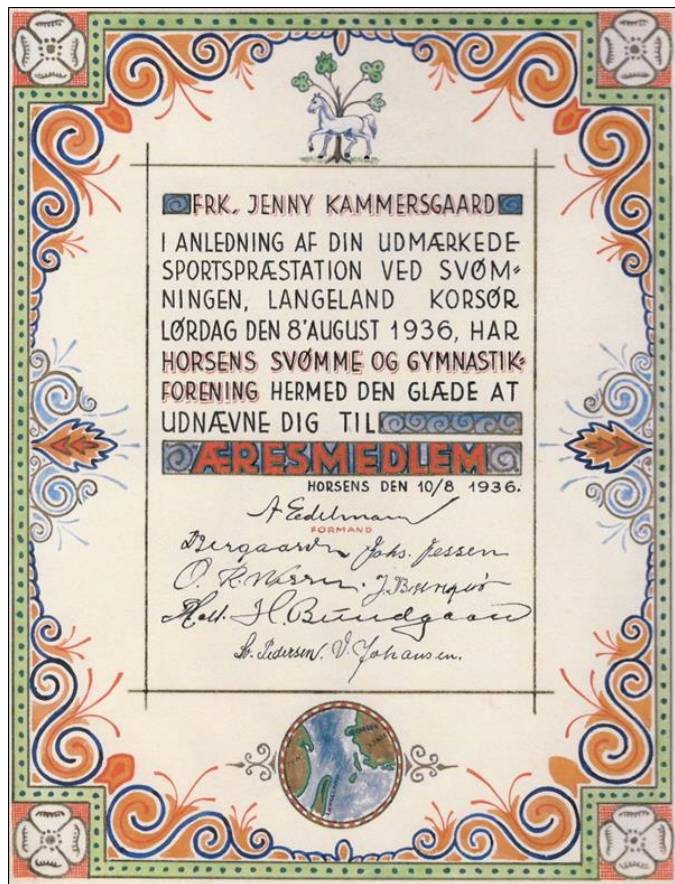 FRK. JENNY KAMMERSGAARD
I ANLEDNING AF DIN UDMÆRKEDE
SPORTSPRÆSTATION VED SVØM-
NINGEN, LANGELAND KORSØR
LØRDAG DEN 8' AUGUST 1936, HAR
HORSENS SVØMME OG GYMNASTIK-
FORENING HERMED DEN GLÆDE AT
UDNÆVNE DIG TIL
ÆRESMEDLEM
HORSENS DEN 10/8 1936.
A Edelmann
FORMAND
Johs. Jessen
O. R.
H. Bundgaard
Sv. Pedersen. V. Johansen.
LANGELAND